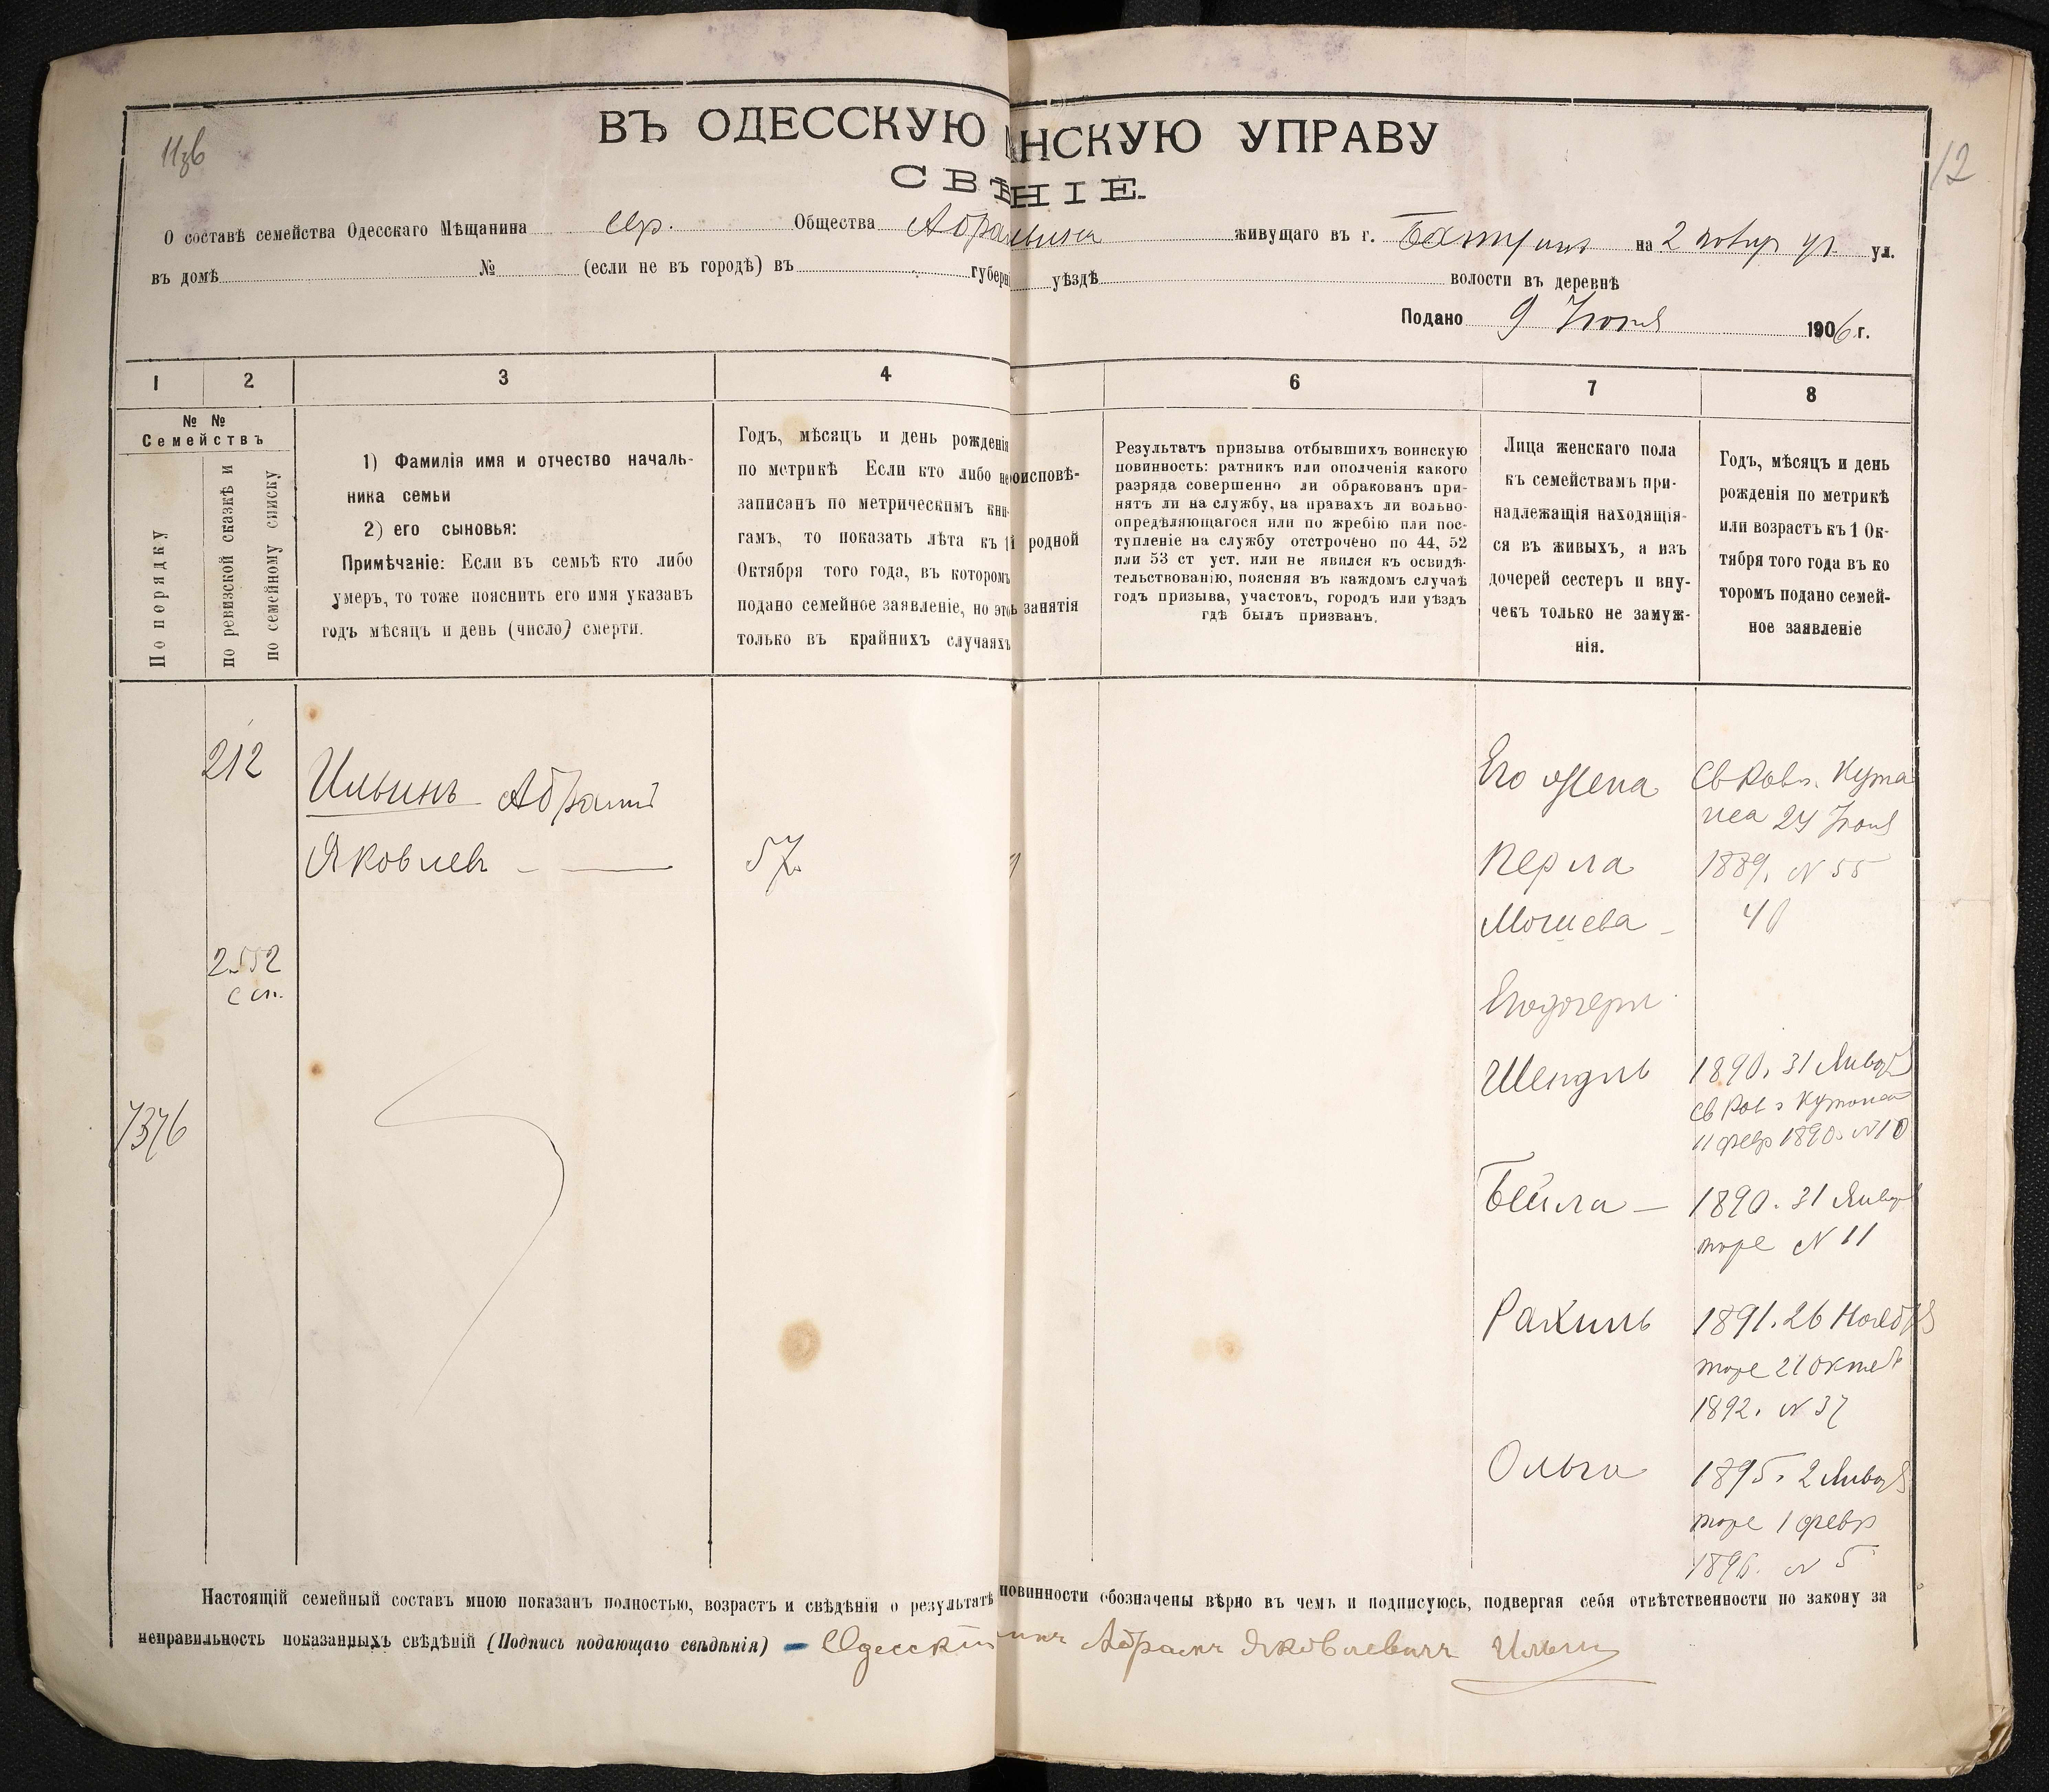 12
Изв
ВЪ ОДЕССКУЮ НСКУЮ УПРАВУ
СВѢНІЕ.
О составѣ семейства Одесскаго Мѣщанина евр. Общества Абра живущаго въ г. на 2 ул.
въ домѣ № (если не въ городѣ) въ губерні уѣздѣ волости въ деревнѣ
Подано 9 Іюня 1906 г.
1 2 3 4 6 7 8
№ №
Семействъ
По порядку
по ревизской сказкѣ и
по семейному списку
1) Фамилія имя и отчество началь-
ника семьи
2) его сыновья:
Примѣчаніе: Если въ семьѣ кто либо
умеръ, то тоже пояснить его имя указавъ
годъ мѣсяцъ и день (число) смерти.
Годъ, мѣсяцъ и день рожденія
по метрикѣ Если кто либо не
записанъ по метрическимъ кни-
гамъ, то показать лѣта къ 1
Октября того года, въ которомъ
подано семейное заявленіе, но это
только въ крайнихъ случаяхъ
оисповѣ-
родной
занятія
Результатъ призыва отбывшихъ воинскую
повинность: ратникъ или ополченія какого
разряда совершенно ли обракованъ при-
нятъ ли на службу, на правахъ ли вольно-
опредѣляющагося или по жребію или пос-
тупленіе на службу отстрочено по 44, 52
или 53 ст уст. или не явился къ освидѣ-
тельствованію, поясняя въ каждомъ случаѣ
годъ призыва, участокъ, городъ или уѣздъ
гдѣ былъ призванъ.
Лица женскаго пола
къ семействамъ при-
надлежащія находящія-
ся въ живыхъ, а изъ
дочерей сестеръ и вну-
чекъ только не замуж-
нія.
Годъ, мѣсяцъ и день
рожденія по метрикѣ
или возрастъ къ 1 Ок-
тября того года въ ко
торомъ подано семей-
ное заявленіе
212
Ильинъ Абрамъ
Яковлев
57
2552
с сп.
7376
Его жена
Перла
Мошева
Св Рав. Кута
иса 24 Іюня
1889. N 55
40
Его дочери
Шендль
1890. 31 Января
Св Рав Кутаиса
11 февр 1890. N 10
Бейла
1890. 31 Январ
тоже N 11
Рахиль
1891. 26 Ноября
тоже 21 октяб
1892. N 37
Ольга
1895. 2 Января
тоже 1 февр
1896. N 5
Настоящій семейный составъ мною показанъ полностью, возрастъ и свѣдѣнія о результатѣ повинности обозначены вѣрно въ чемъ и подписуюсь, подвергая себя отвѣтственности по закону за
неправильность показанныхъ свѣдѣній (Подпись подающаго свѣдѣнія) Одесскій Абрамъ Яковлевичъ Ильин